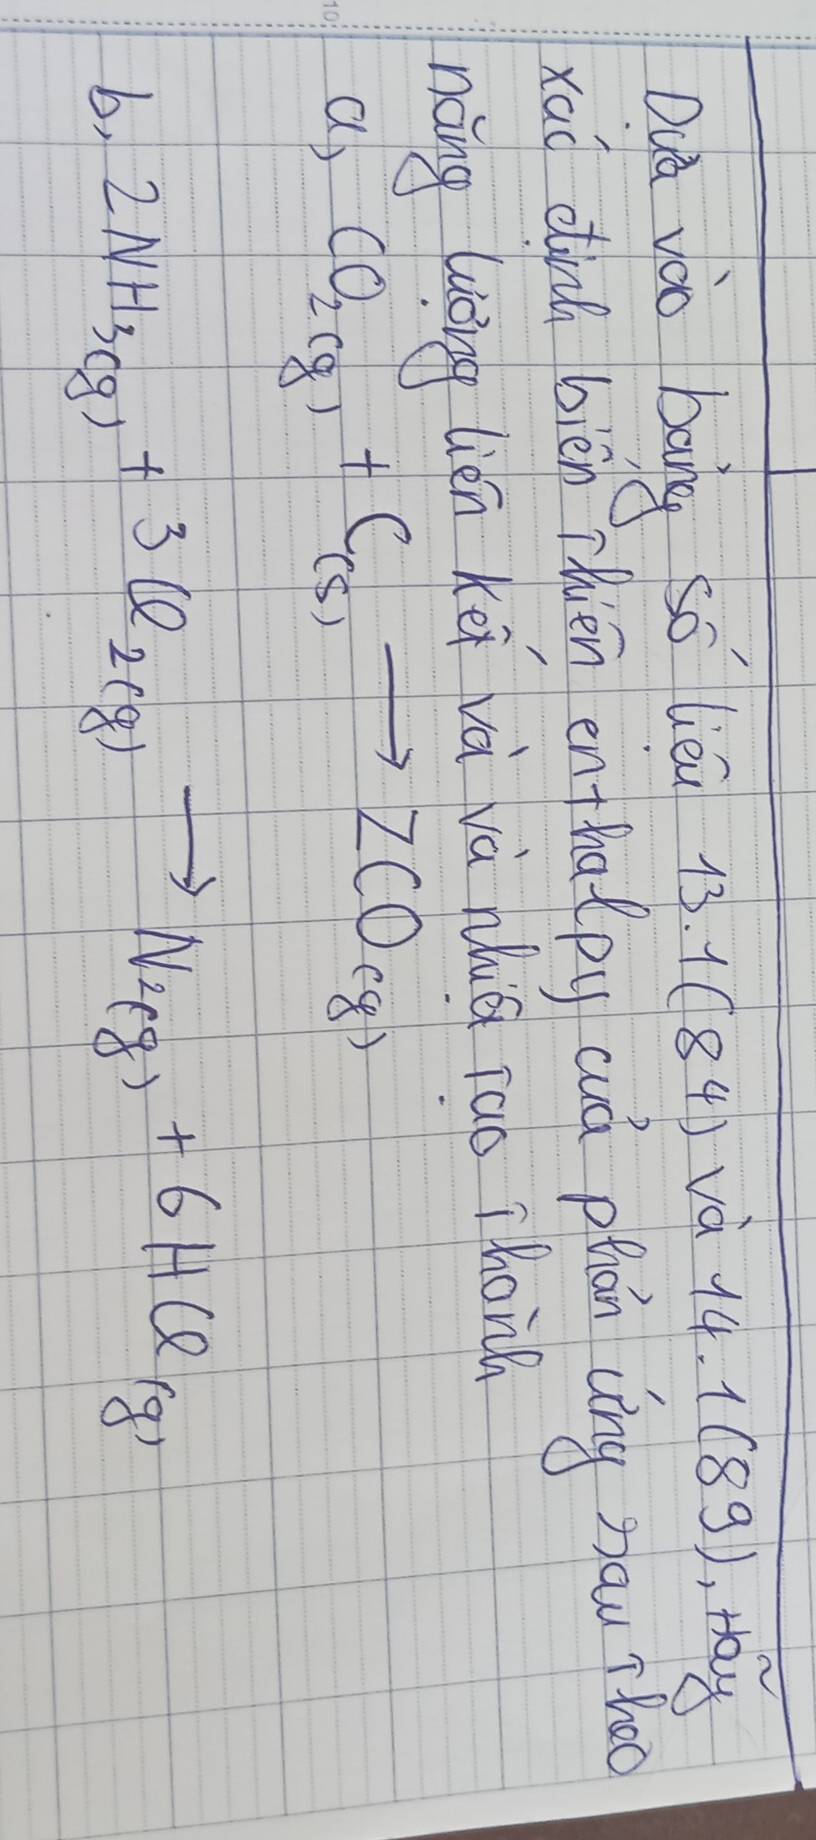 Dựa vào bảng số liệu 13.1(84) và 14.1(89), Hãy
xác định biến thiên enthalpy của phản ứng sau theo
năng lượng liên kết và và nhiệt tạo thành
a, CO2(g) + C(s) → 2CO(g)
b, 2NH3(g) + 3Cl2(g) → N2(g) + 6HCl(g)
10